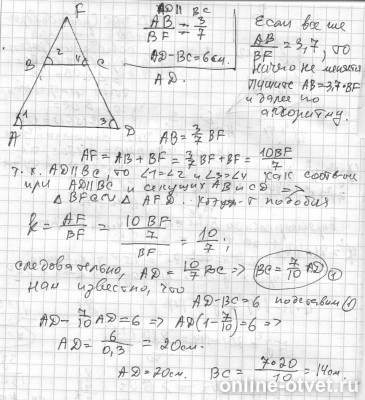 F
2
B
4
C
1
A
3
D
AD ∥ BC
AB/BF = 3/7
AD-BC=6см.
AD.
Если все же
AB/BF = 3,7, то
ничего не меняется
Пишите AB=3,7•BF
и далее по
алгоритму.
AB = 3/7 BF
AF = AB + BF = 3/7 BF + BF = 10BF/7
т.к. AD∥BC, то ∠1=∠2 и ∠3=∠4 как соответ
при AD∥BC и секущих AB и CD =>
△ BFC ∾ △ AFD. подобия
k = AF/BF = (10 BF/7)/BF = 10/7 ;
следовательно, AD = 10/7 BC => BC = 7/10 AD ①
Нам известно, что
AD-BC=6 подставим ①
AD - 7/10 AD = 6 => AD(1-7/10)=6 =>
AD = 6/0,3 = 20см.
AD=20см. BC = 7•20/10 = 14см
online-otvet.ru